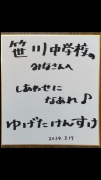 笹川中学校の
みなさんへ
しあわせに
なあれ♪
ゆげたけんすけ
2024.3.17